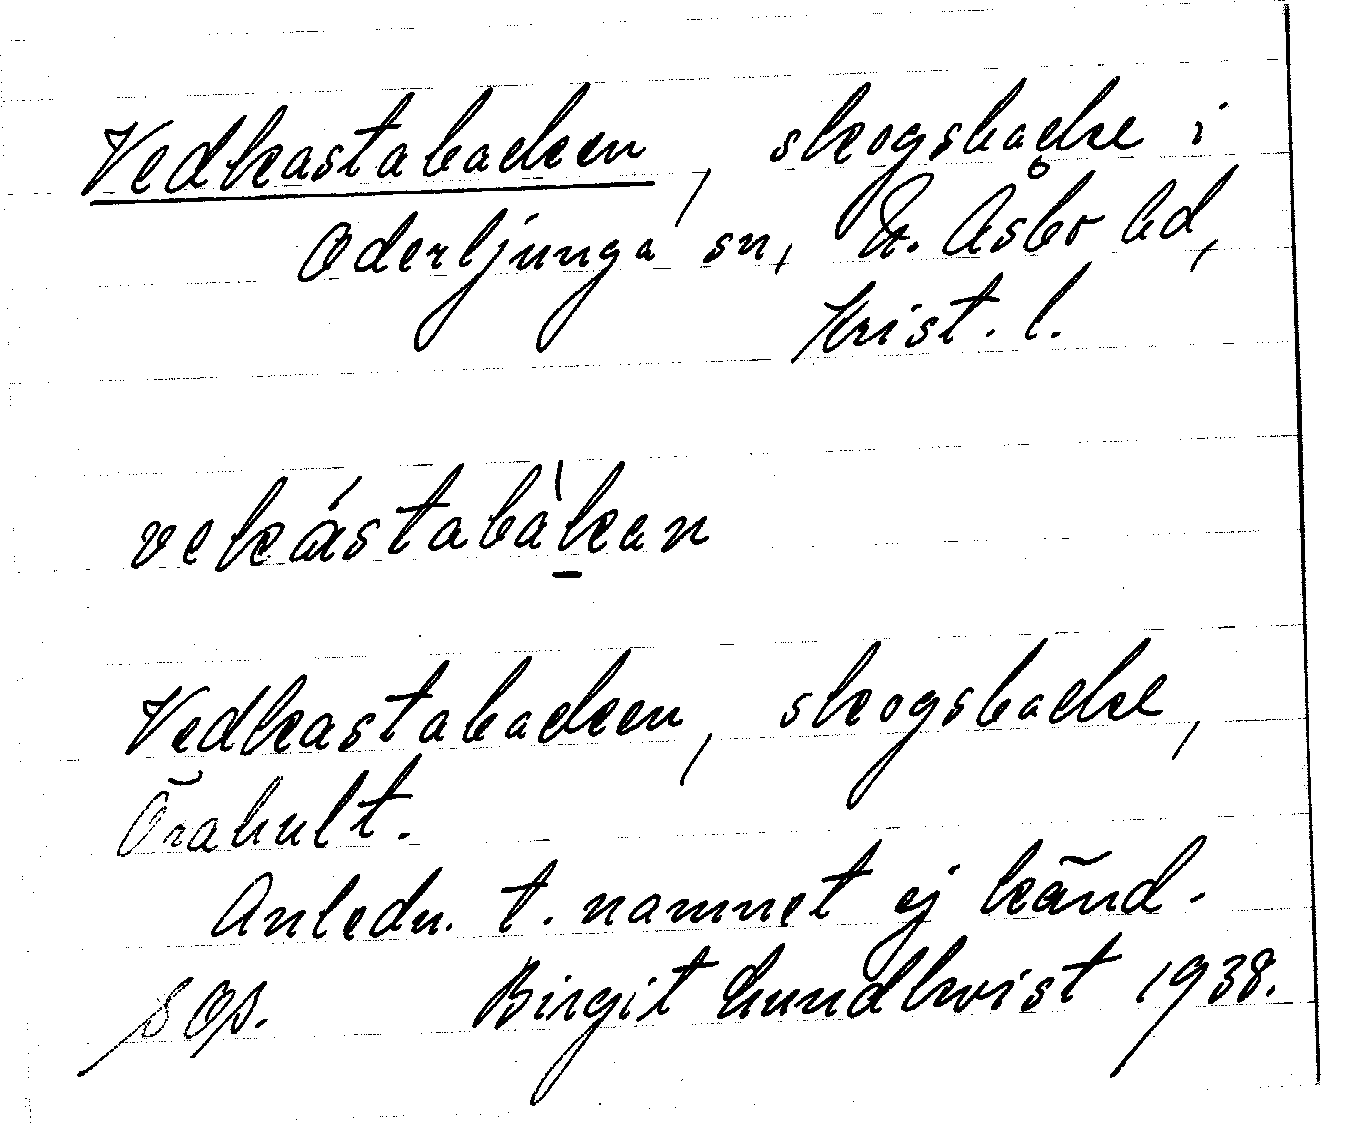 Vedkastabacken, skogsbacke i
Oderljunga sn, N. Åsbo hd,
Krist. l.
vekástabàkan
Vedkastabacken, skogsbacke,
Örahult.
Anledn. t. namnet ej känd.
Birgit Lundkvist 1938.